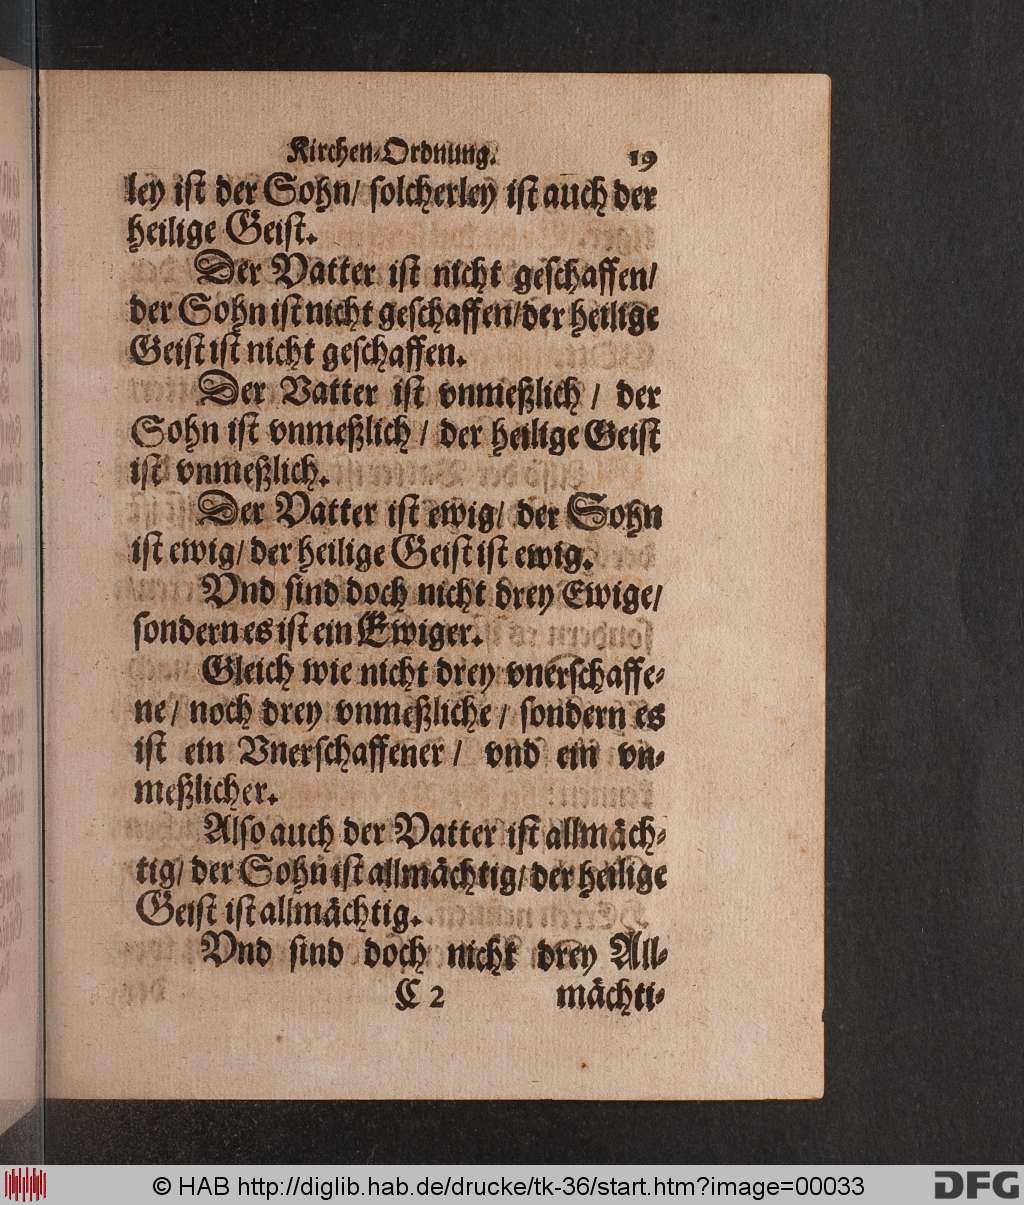 Kirchen-Ordnung. 19
ley ist der Sohn/ solcherley ist auch der
heilige Geist.
Der Vatter ist nicht geschaffen/
der Sohn ist nicht geschaffen/ der heilige
Geist ist nicht geschaffen.
Der Vatter ist vnmeßlich / der
Sohn ist vnmeßlich / der heilige Geist
ist vnmeßlich.
Der Vatter ist ewig/ der Sohn
ist ewig/ der heilige Geist ist ewig.
Vnd sind doch nicht drey Ewige/
sondern es ist ein Ewiger.
Gleich wie nicht drey vnerschaffe-
ne/ noch drey vnmeßliche / sondern es
ist ein Vnerschaffener / vnd ein vn-
meßlicher.
Also auch der Vatter ist allmäch-
tig/ der Sohn ist allmächtig/ der heilige
Geist ist allmächtig.
Vnd sind doch nicht drey All-
C 2 mächti-
© HAB http://diglib.hab.de/drucke/tk-36/start.htm?image=00033
DFG